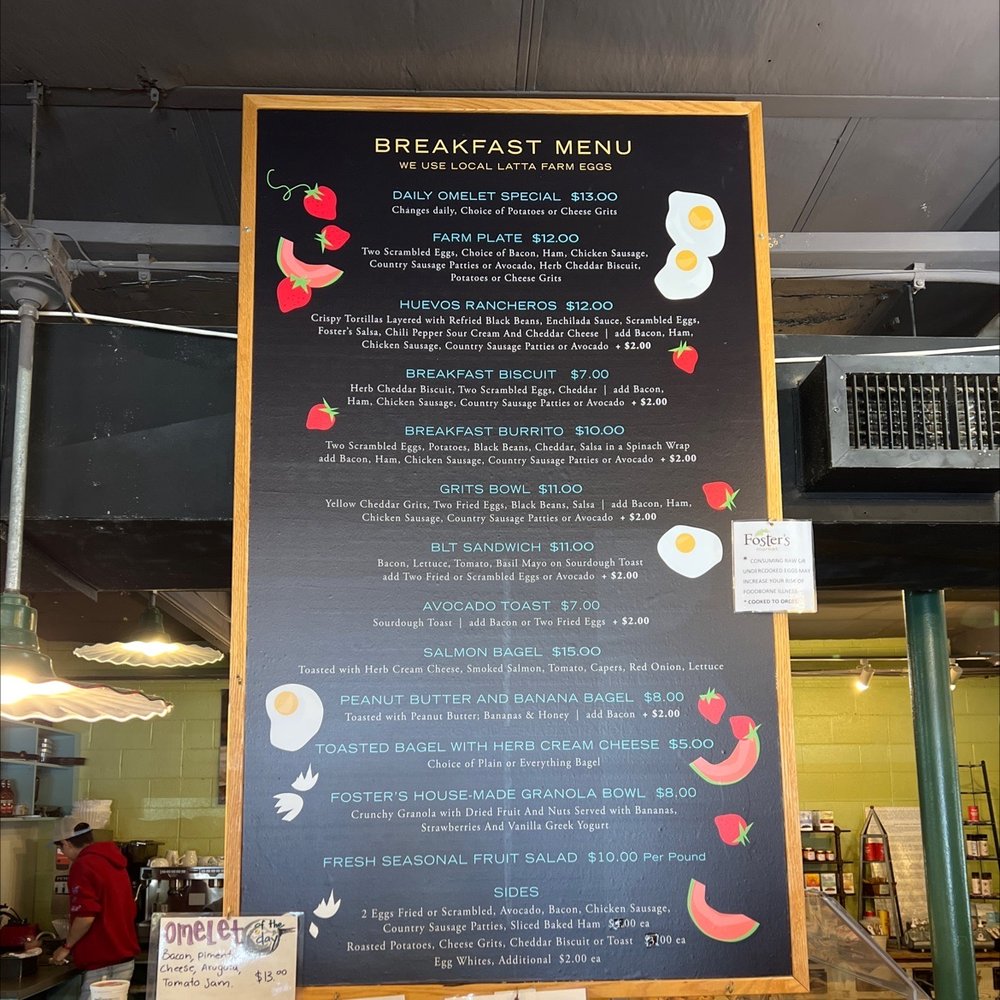 BREAKFAST MENU
WE USE LOCAL LATTA FARM EGGS
DAILY OMELET SPECIAL $13.00
Changes daily, Choice of Potatoes or Cheese Grits
FARM PLATE $12.00
Two Scrambled Eggs, Choice of Bacon, Ham, Chicken Sausage,
Country Sausage Patties or Avocado, Herb Cheddar Biscuit,
Potatoes or Cheese Grits
HUEVOS RANCHEROS $12.00
Crispy Tortillas Layered with Refried Black Beans, Enchilada Sauce, Scrambled Eggs,
Foster's Salsa, Chili Pepper Sour Cream And Cheddar Cheese | add Bacon, Ham,
Chicken Sausage, Country Sausage Patties or Avocado + $2.00
BREAKFAST BISCUIT $7.00
Herb Cheddar Biscuit, Two Scrambled Eggs, Cheddar | add Bacon,
Ham, Chicken Sausage, Country Sausage Patties or Avocado + $2.00
BREAKFAST BURRITO $10.00
Two Scrambled Eggs, Potatoes, Black Beans, Cheddar, Salsa in a Spinach Wrap
add Bacon, Ham, Chicken Sausage, Country Sausage Patties or Avocado + $2.00
GRITS BOWL $11.00
Yellow Cheddar Grits, Two Fried Eggs, Black Beans, Salsa | add Bacon, Ham,
Chicken Sausage, Country Sausage Patties or Avocado + $2.00
BLT SANDWICH $11.00
Bacon, Lettuce, Tomato, Basil Mayo on Sourdough Toast
add Two Fried or Scrambled Eggs or Avocado + $2.00
AVOCADO TOAST $7.00
Sourdough Toast | add Bacon or Two Fried Eggs + $2.00
SALMON BAGEL $15.00
Toasted with Herb Cream Cheese, Smoked Salmon, Tomato, Capers, Red Onion, Lettuce
PEANUT BUTTER AND BANANA BAGEL $8.00
Toasted with Peanut Butter; Bananas & Honey | add Bacon + $2.00
TOASTED BAGEL WITH HERB CREAM CHEESE $5.00
Choice of Plain or Everything Bagel
FOSTER'S HOUSE-MADE GRANOLA BOWL $8.00
Crunchy Granola with Dried Fruit And Nuts Served with Bananas,
Strawberries And Vanilla Greek Yogurt
FRESH SEASONAL FRUIT SALAD $10.00 Per Pound
SIDES
2 Eggs Fried or Scrambled, Avocado, Bacon, Chicken Sausage,
Country Sausage Patties, Sliced Baked Ham ea
Roasted Potatoes, Cheese Grits, Cheddar Biscuit or Toast ea
Egg Whites, Additional $2.00 ea
Foster's
* CONSUMING RAW OR
UNDERCOOKED EGGS MAY
INCREASE YOUR RISK OF
FOODBORNE ILLNESS
* COOKED TO ORDER
Omelet of the day
Bacon,
Cheese, Arugula,
Tomato Jam. $13.00